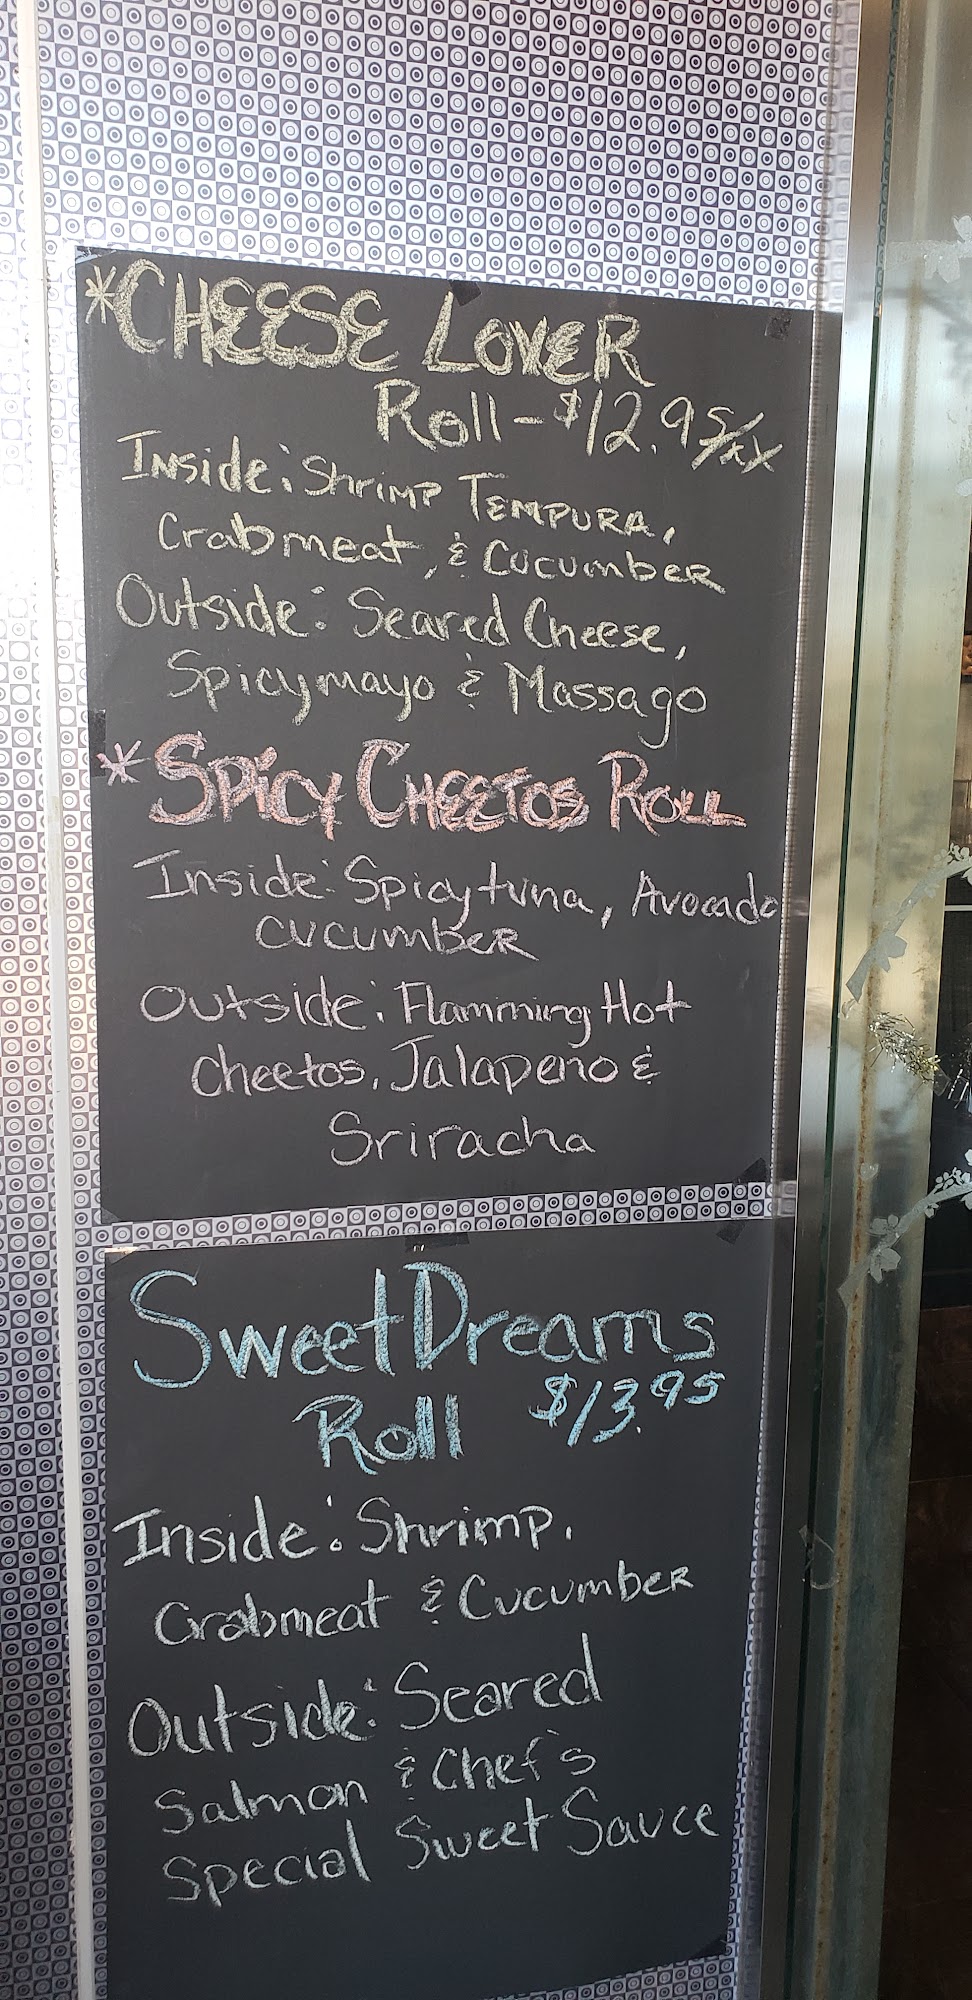 *CHEESE LOVER
Roll - $12.95/xx
Inside: Shrimp TEMPURA,
Crabmeat, & Cucumber
Outside: Seared Cheese,
Spicymayo & Massago
*Spicy CHEETOS ROLL
Inside: Spicytuna, Avocado
CUCUMBER
Outside: Flamming Hot
Cheetos, Jalapeno &
Sriracha
Sweet Dreams
Roll $13.95
Inside: Shrimp,
Crabmeat & Cucumber
Outside: Seared
Salmon & Chef's
Special Sweet Sauce